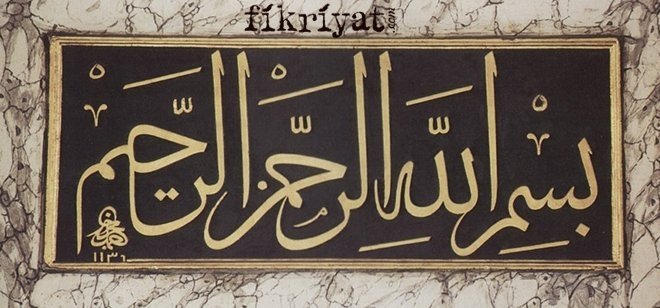 fikriyat.com
بسم الله الرحمن الرحيم
١١٣٦